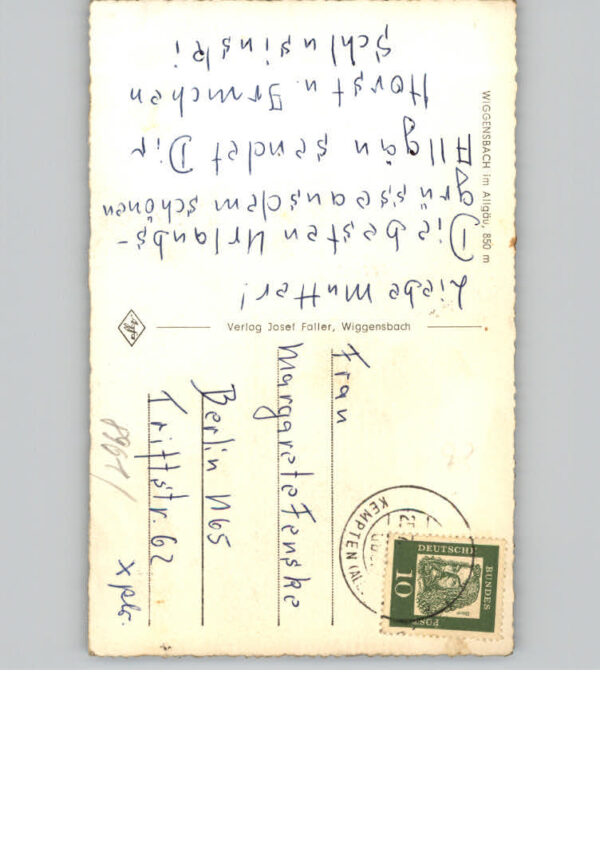 WIGGENSBACH im Allgäu, 850 m
Liebe Mutter!
Die besten Urlaubs-
grüsse aus dem schönen
Allgäu sendet Dir
Horst u. Irmchen
Schlusinski
Verlag Josef Faller, Wiggensbach
Frau
Margarete Fenske
Berlin N65
Triftstr. 62
KEMPTEN (AL
DEUTSCHE
BUNDES
POST
10